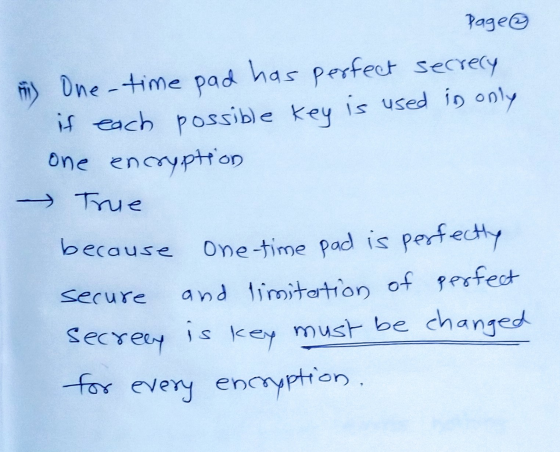 Page ②
iii) One-time pad has perfect secrecy
if each possible key is used in only
one encryption
→ True
because one-time pad is perfectly
secure and limitation of perfect
secrecy is key must be changed
for every encryption.